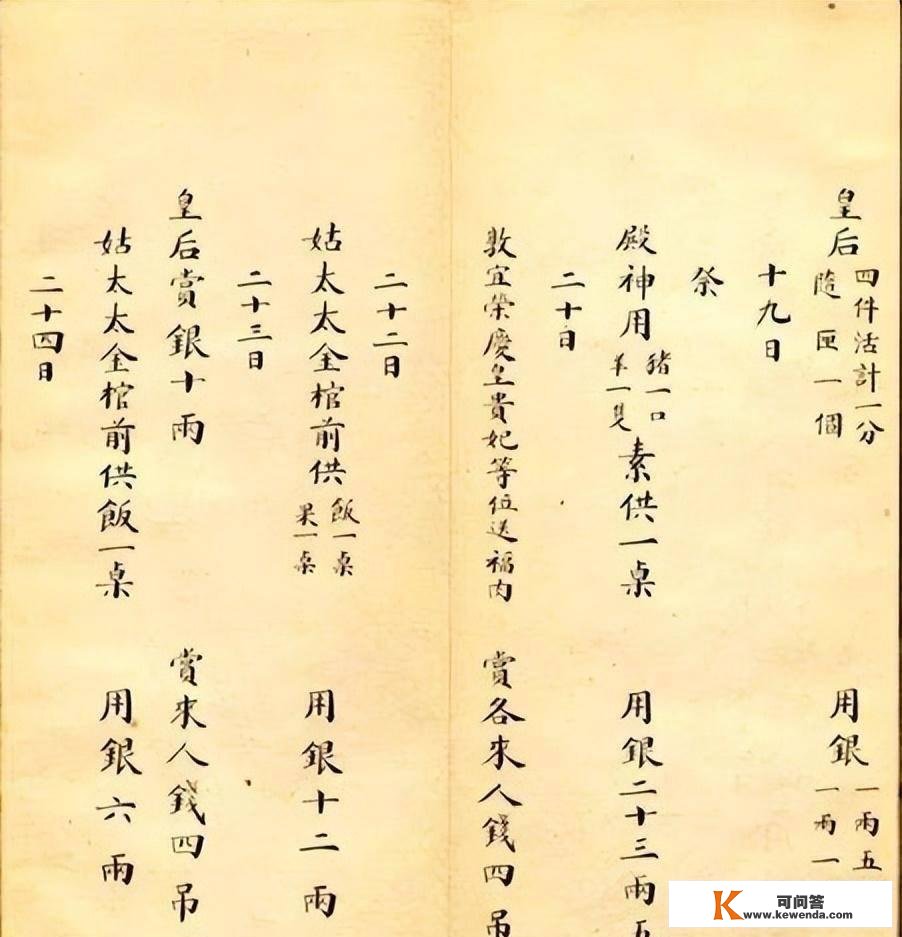 皇后四件活計一分隨匣一個 用銀一兩五一兩一
十九日
祭
殿神用豬一口羊一隻素供一桌 用銀二十三兩五
二十日
敦宜榮慶皇貴妃等位送福肉 賞各來人錢四吊
二十二日
姑太太金棺前供飯一桌果一桌 用銀十二兩
二十三日
皇后賞銀十兩 賞來人錢四吊
姑太太金棺前供飯一桌 用銀六兩
二十四日
可问答
www.kewenda.com